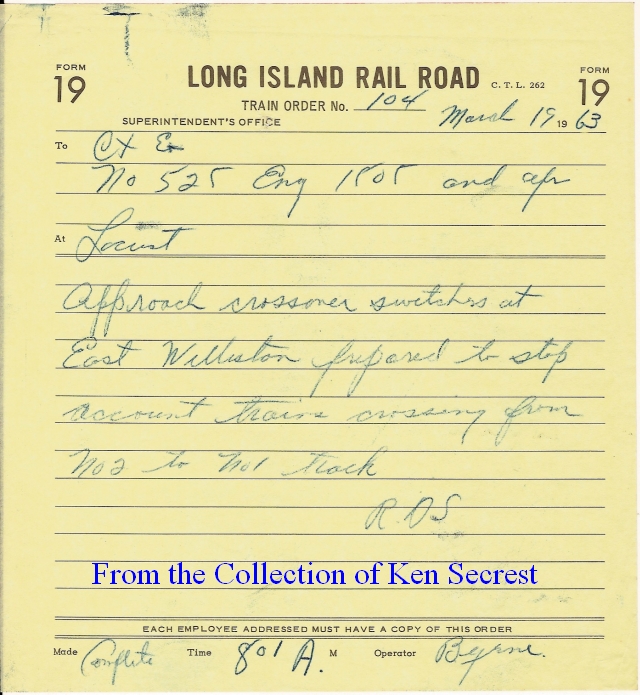 FORM 19 LONG ISLAND RAIL ROAD C. T. L. 262 FORM 19
TRAIN ORDER No. 104 March 19 1963
SUPERINTENDENT'S OFFICE
To C+E
No 525 Eng 1505 and opr
At Locust
Approach crossover switches at
East Williston prepared to stop
account trains crossing from
No2 to No1 track
R.D.S
From the Collection of Ken Secrest
EACH EMPLOYEE ADDRESSED MUST HAVE A COPY OF THIS ORDER
Made Complete Time 801 A. M Operator Byrne.